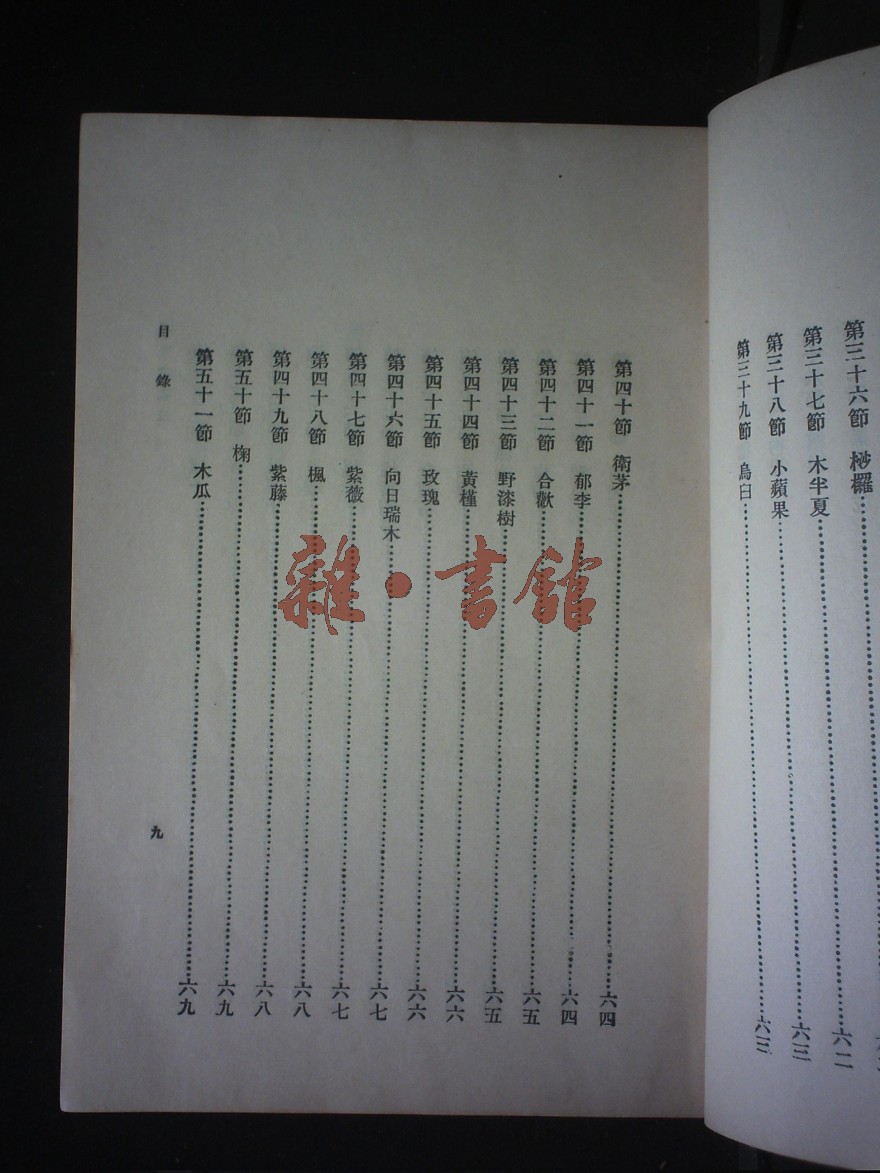 第三十六節 桫欏
第三十七節 木半夏……六二
第三十八節 小蘋果……六三
第三十九節 烏臼……六三
第四十節 衛茅……六四
第四十一節 郁李……六四
第四十二節 合歡……六五
第四十三節 野漆樹……六五
第四十四節 黃槿……六六
第四十五節 玫瑰……六六
第四十六節 向日瑞木……六七
第四十七節 紫薇……六七
第四十八節 楓……六八
第四十九節 紫藤……六八
第五十節 椈……六九
第五十一節 木瓜……六九
目錄
九
雜·書館